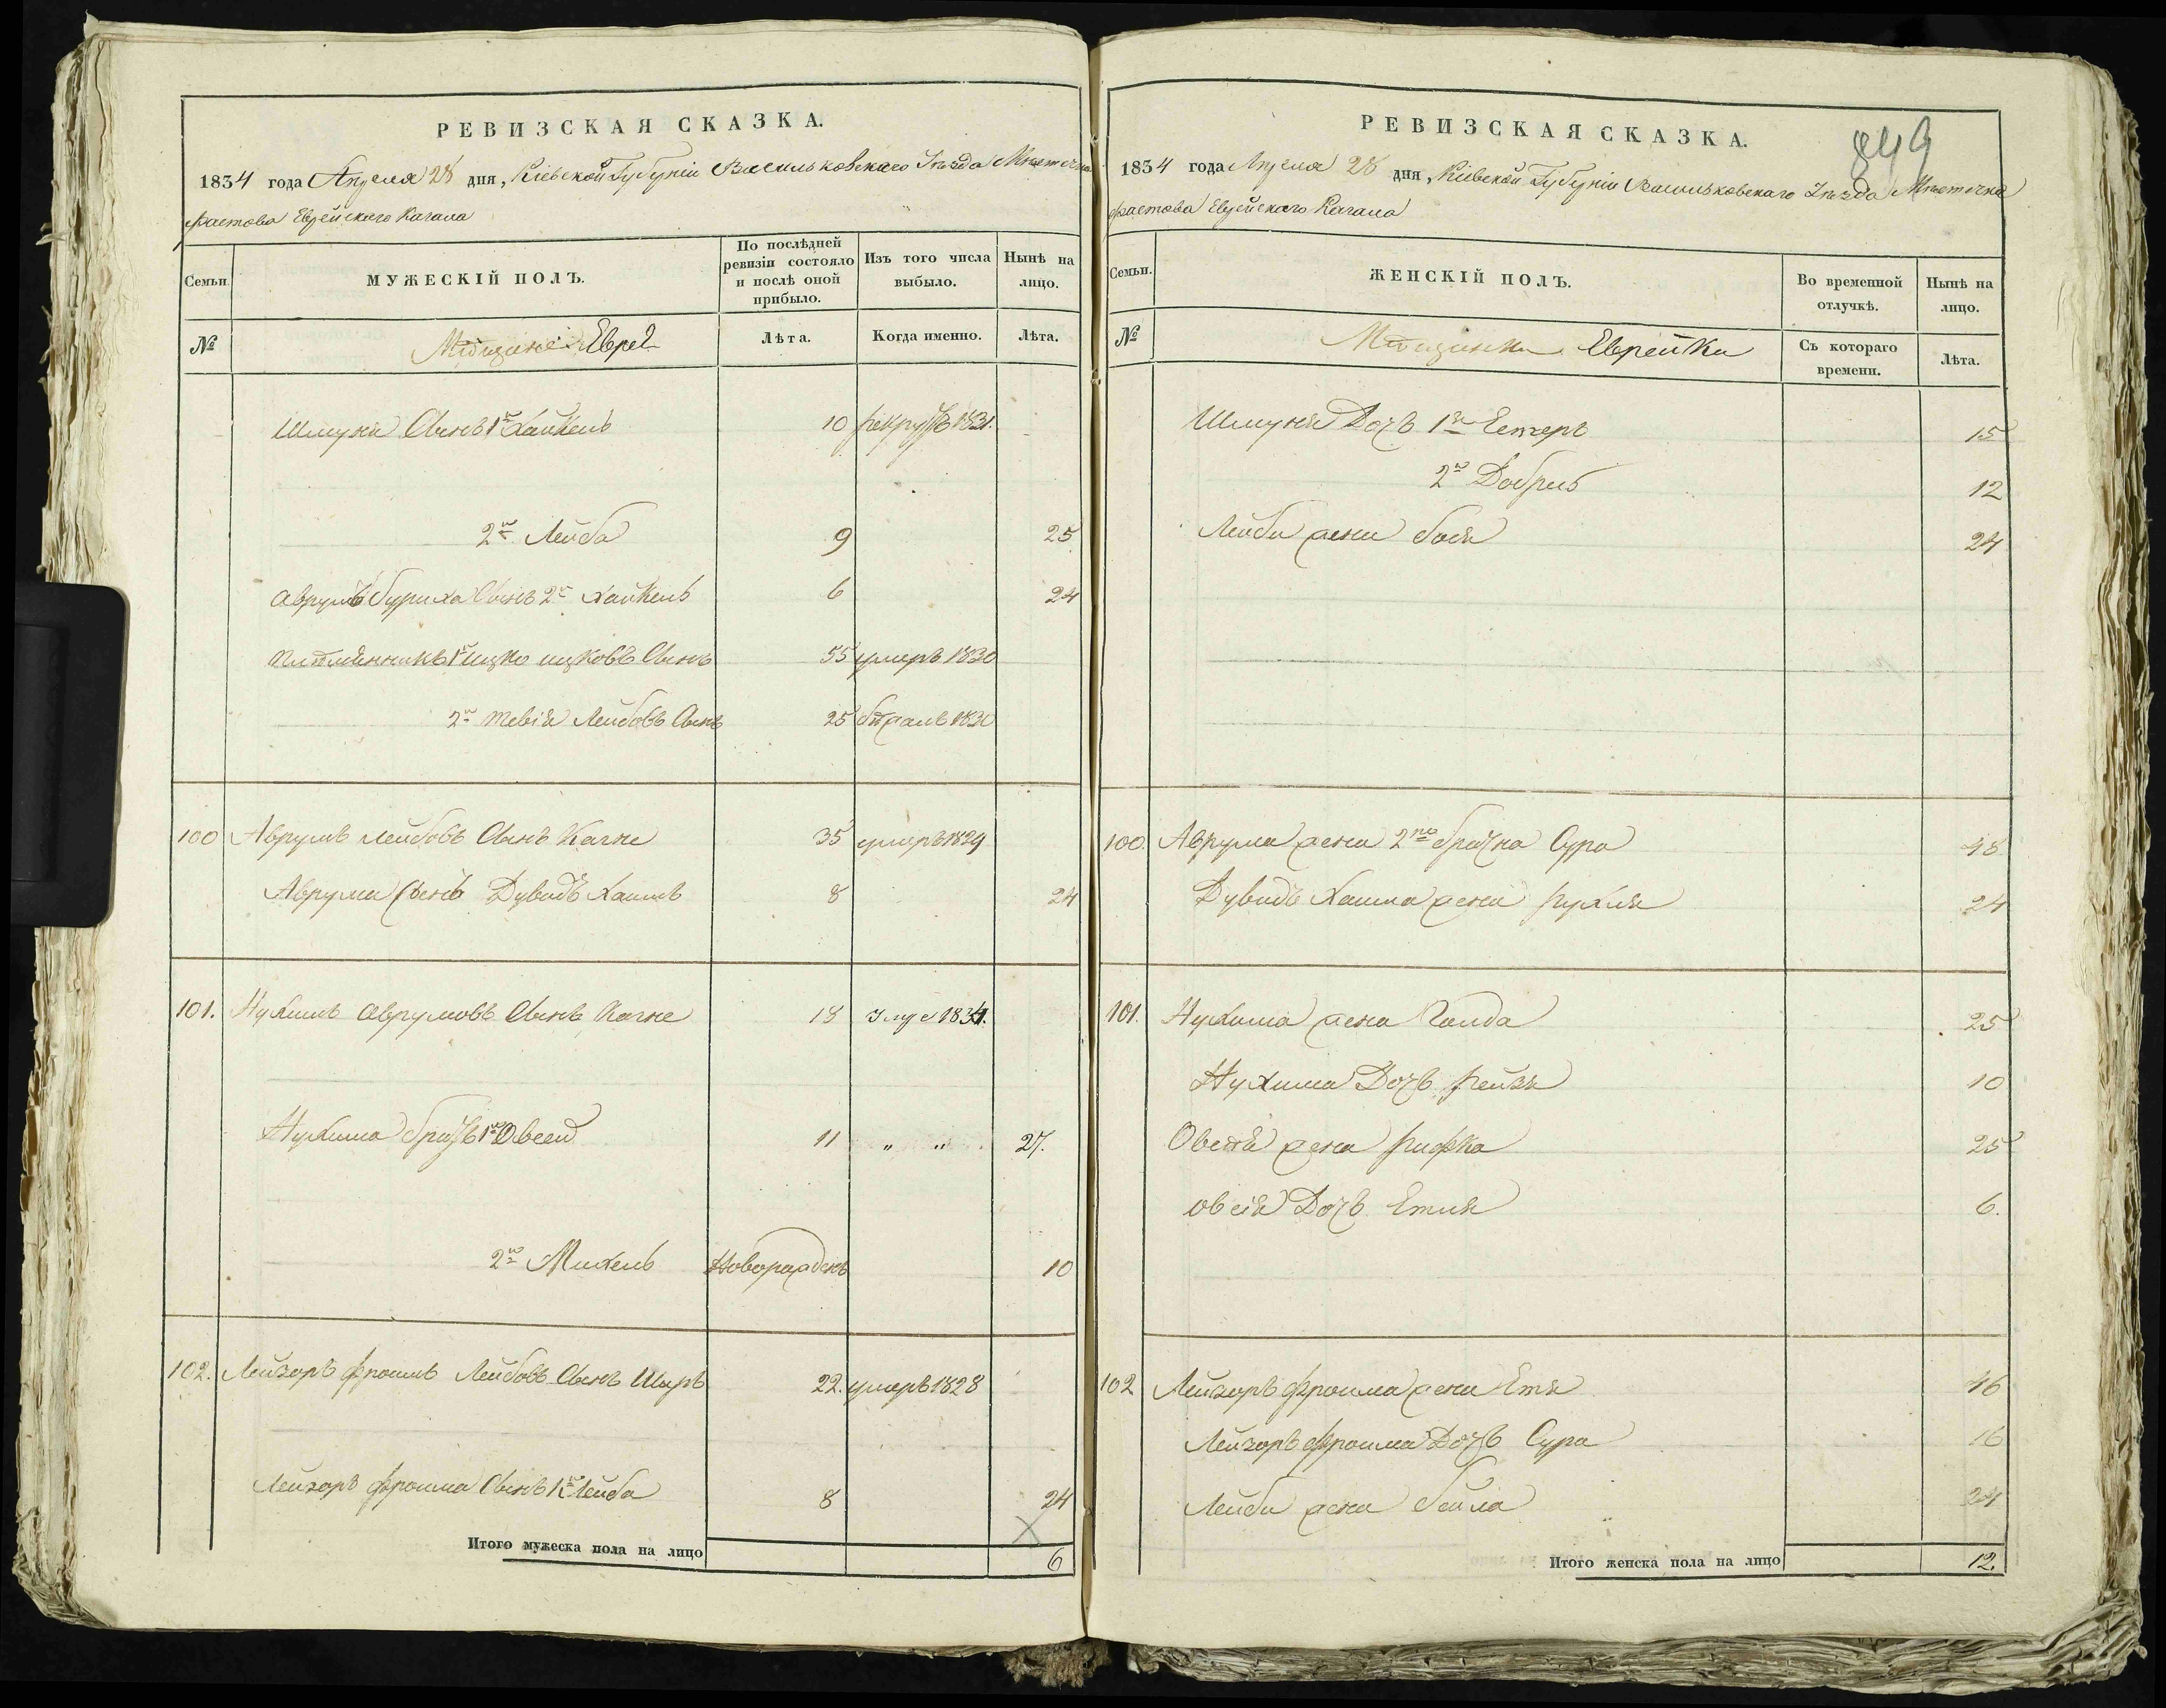 РЕВИЗСКАЯ СКАЗКА.
1834 года Апреля 28 дня, Кіевской Губерніи Васильковскаго Уѣзда Мѣстечка
Фастова Еврейскаго Кагала
Семьи.
МУЖЕСКІЙ ПОЛЪ.
По послѣдней ревизіи состояло и послѣ оной прибыло.
Изъ того числа выбыло.
Нынѣ на лицо.
№
Мѣщане Евреи
Лѣта.
Когда именно.
Лѣта.
Шмуня Сынъ 1й Хайкель 10 рекрутъ 1831.
2й Лейба 9 25
Аврумъ Буриха Сынъ 2й Хайкель 6 24
Племянникъ 1й Ицко Ицковъ Сынъ 55 умеръ 1830
2й Тевія Лейбовъ Сынъ 25 бѣжалъ 1830
100 Аврумъ Лейбовъ Сынъ Качке 35 умеръ 1829
Аврума Сынъ Дувидъ Хаимъ 8 24
101. Нухимъ Аврумовъ Сынъ Качке 18 1834.
Нухима братъ 1й Овсей 11 „ „ 27.
2й Михель Новорожденъ 10
102. Лейзоръ Фроимъ Лейбовъ Сынъ Шыръ 22. умеръ 1828
Лейзоръ Фроима Сынъ 1й Лейба 8 24
Итого мужеска пола на лицо 6
849
РЕВИЗСКАЯ СКАЗКА.
1834 года Апреля 28 дня, Кіевской Губерніи Васильковскаго Уѣзда Мѣстечка
Фастова Еврейскаго Кагала
Семьи.
ЖЕНСКІЙ ПОЛЪ.
Во временной отлучкѣ.
Нынѣ на лицо.
№
Мѣщанки Еврейки
Съ котораго времени.
Лѣта.
Шмуня Дочь 1я Естеръ 15
2я Добришь 12
Лейби жена Бася 24
100. Аврума жена 2го брачна Сура 48
Дувидъ Хаима жена Рухля 24
101. Нухима жена Голда 25
Нухима Дочь Рейзя 10
Овсія жена Рифка 25
Овсія Дочь Етля 6.
102 Лейзоръ Фроима жена Етя 46
Лейзоръ Фроима Дочь Сура 16
Лейби жена Бейла 24
Итого женска пола на лицо 12.